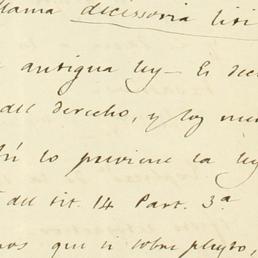 llama decissoria liti
antigua ley — Es dec
del derecho, y hoy
lo previene la ley
del tit. 14 Part. 3ª
que si sobre pleyto,